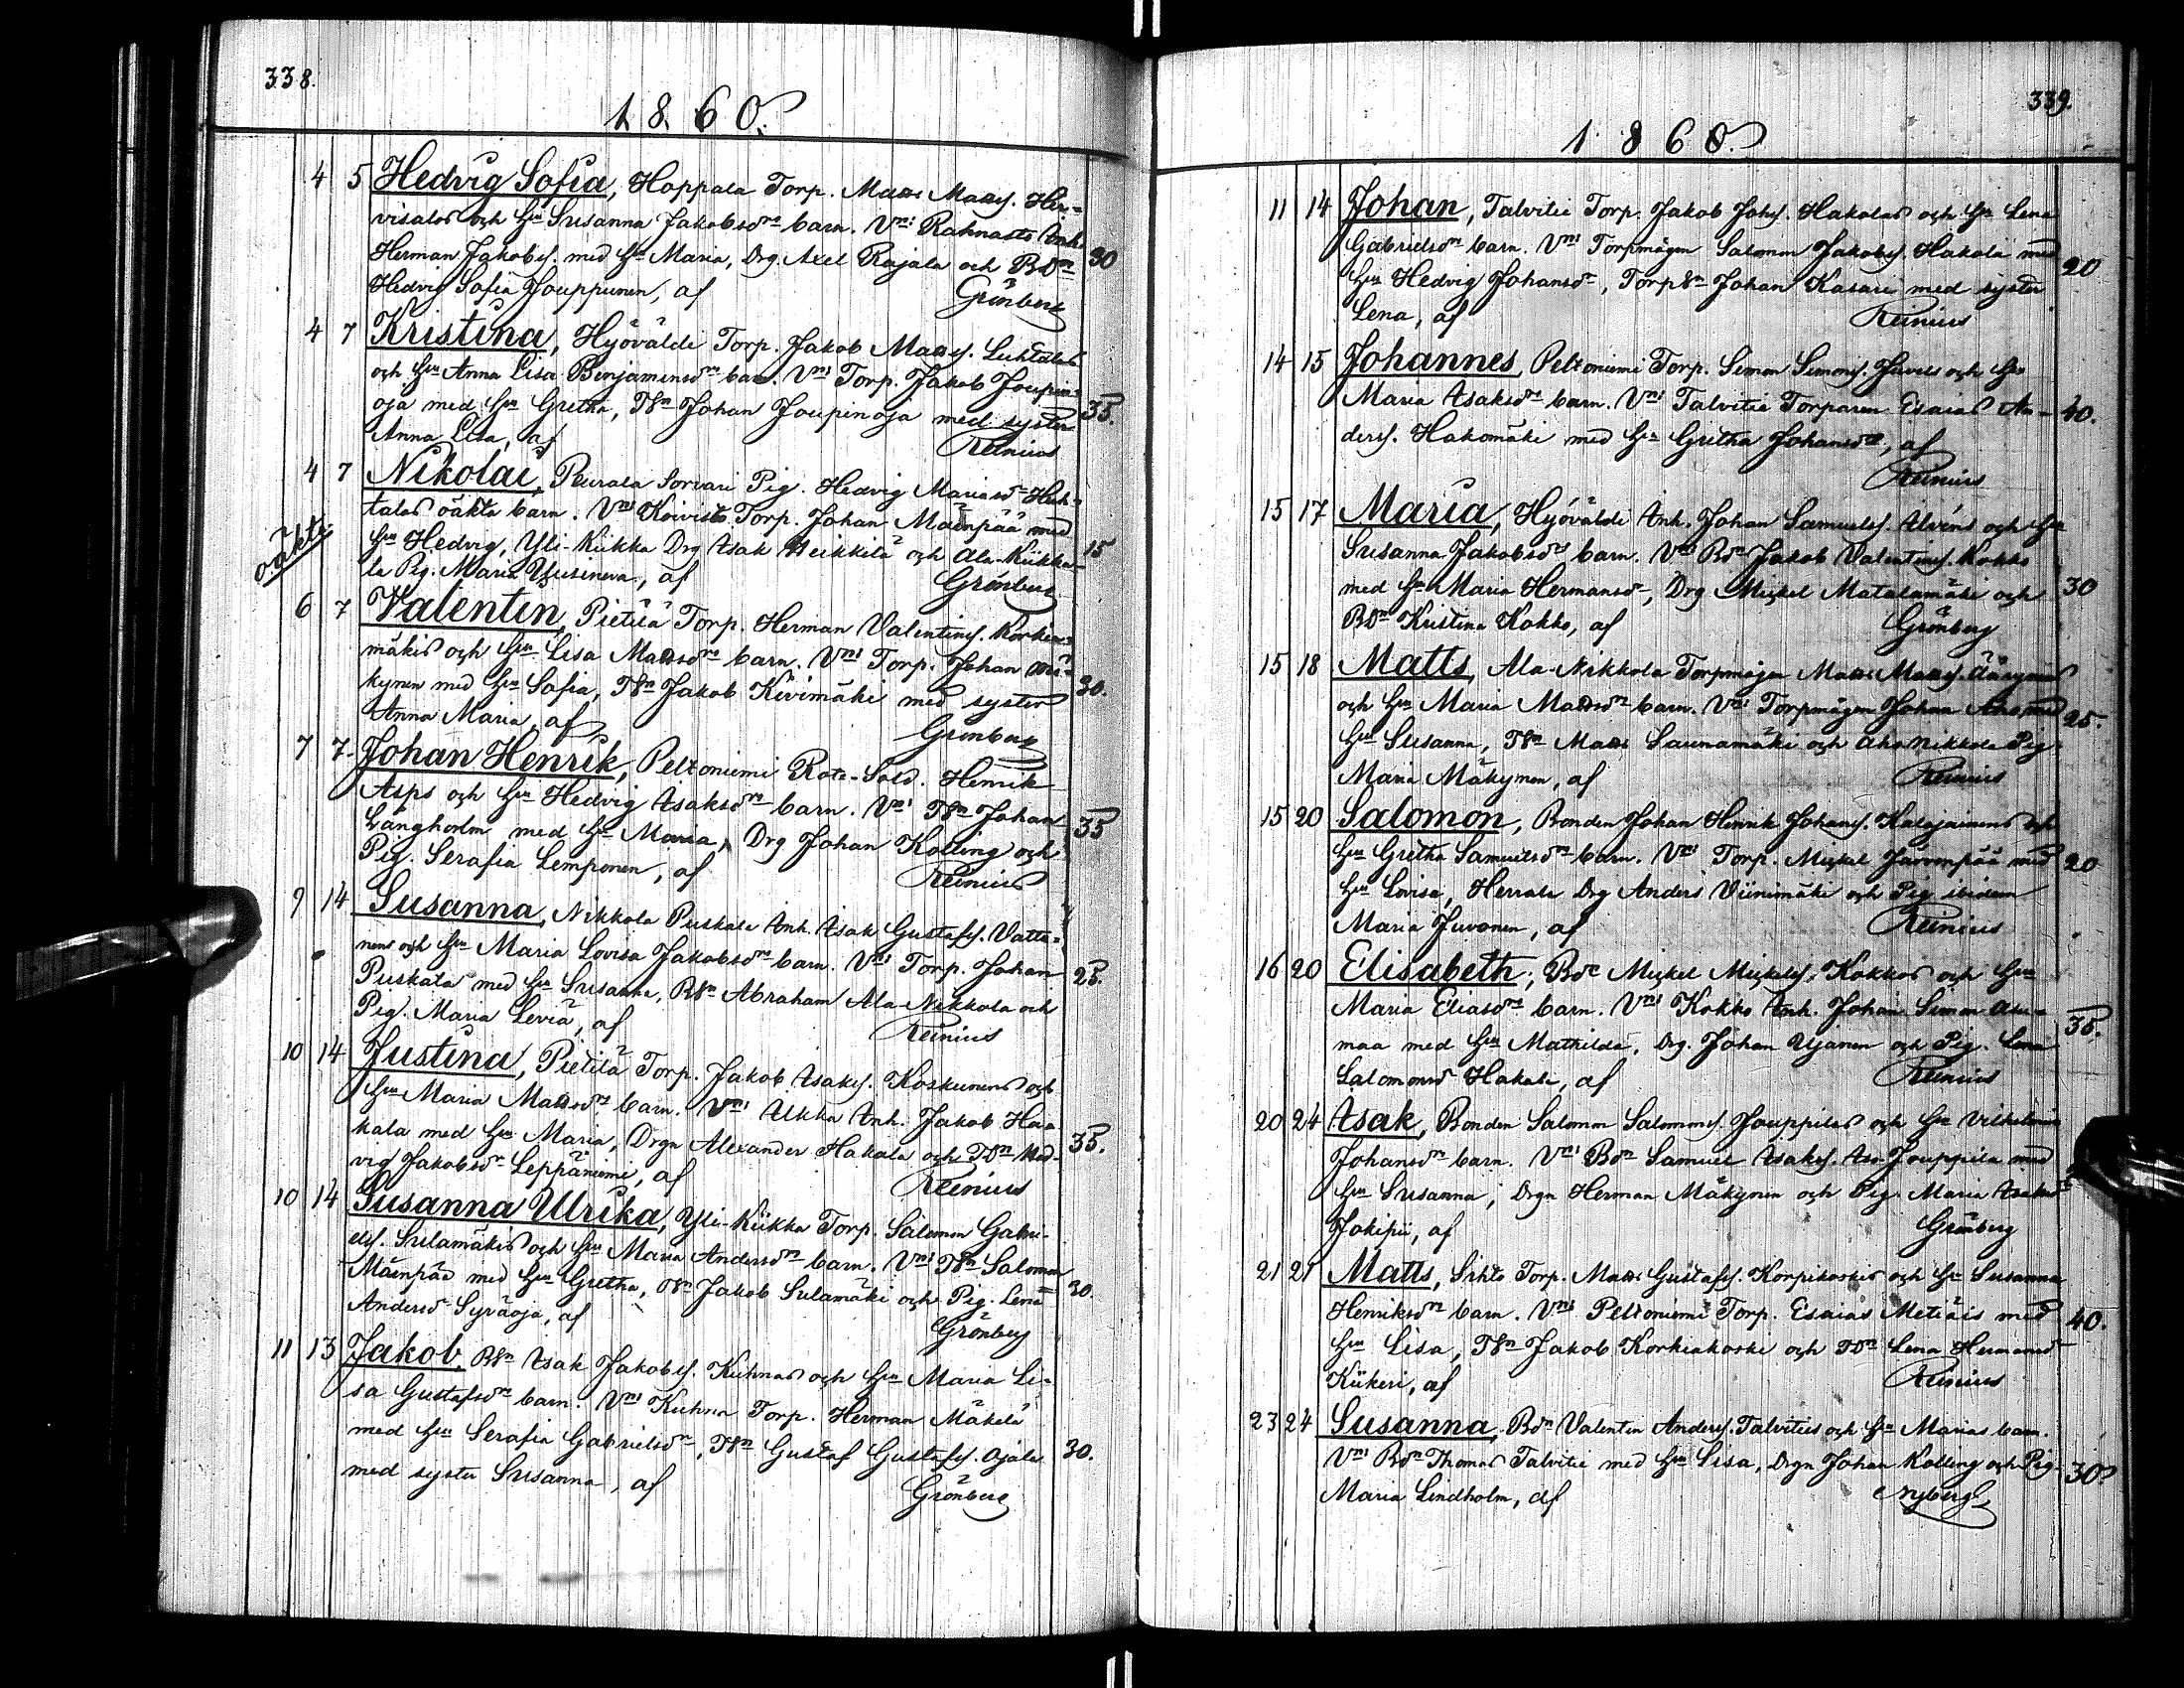 338.
1860.
4 5 Hedvig Sofia, Hoppala Torp. Matts Mattss. Her-
visalas och Hu Susanna Jakobsdrs barn. Vni Rahnasto Inh.
Herman Jakobss. med Hu Maria, Drg. Axel Rajala och BDn 30
Hedvig Sofia Jouppunen, af Grönberg
4 7 Kristina, Hyöväldi Torp. Jakob Mattss. Luhtalas
och Hu Anna Lisa Benjaminsdrs barn. Vni Torp. Jakob Joupin-
oja med Hu Gretha, TSn Johan Joupinoja med syster 35.
Anna Lisa, af Reinius
4 7 Nikolai, Peurala Sorvari Pig. Hedvig Mariasdr
talas oäkta barn. Vni Koivisto Torp. Johan Mäenpää med
oäkta
Hu Hedvig, Yli-Kiikka Drg Isak Heikkilä och Ala-Kiikka- 15
la Pig. Maria Yusineva, af Grönberg
6 7 Valentin, Pietilä Torp. Herman Valentins. Korkia-
mäkis och Hu Lisa Mattsdrs barn. Vni Torp. Johan Mä-
kynen med Hu Sofia, TSn Jakob Kivimäki med syster 30.
Anna Maria, af Grönberg
7 7 Johan Henrik, Peltoniemi Rote-Sold. Henrik
Asps och Hu Hedvig Isaksdrs barn. Vni TSn Johan
Långholm med Hu Maria, Drg Johan Kolling och 35
Pig. Serafia Lemponen, af Reinius
9 14 Susanna, Nikkola Puskala Inh. Isak Gustafss. Vatta-
nens och Hu Maria Lovisa Jakobsdrs barn. Vni Torp. Johan
Puskala med Hu Susanna, BSn Abraham Ala-Nikkola och 25.
Pig. Maria Leviä, af Reinius
10 14 Justina, Pietilä Torp. Jakob Isakss. Koskunens och
Hu Maria Mattsdrs barn. Vni Ukka Inh. Jakob Ha-
kala med Hu Maria, Drgn Alexander Hakala och TDn Hed- 35.
vig Jakobsdr Leppäniemi, af Reinius
10 14 Susanna Ulrika, Yli-Kiikka Torp. Salomon Gabri-
elss. Sulamäkis och Hu Maria Andersdrs barn. Vni TSn Salomon
Mäenpää med Hu Gretha, TSn Jakob Sulamäki och Pig. Lena 30.
Andersdr Syväoja, af Grönberg
11 13 Jakob, BSn Isak Jakobss. Kuhnas och Hu Maria Li-
sa Gustafsdrs barn. Vni Kuhna Torp. Herman Mäkelä
med Hu Serafia Gabrielsdr, TSn Gustaf Gustafss. Ojala 30.
med syster Susanna, af Grönberg
339.
1860.
11 14 Johan, Talvitie Torp. Jakob Johss. Hakalas och Hu Lena
Gabrielsdrs barn. Vni Torpmågen Salomon Jakobss. Hakola med 20
Hu Hedvig Johansdr, TorpSn Johan Kasari med syster
Lena, af Reinius
14 15 Johannes, Peltoniemi Torp. Simon Simonss. Juvels och Hu
Maria Isaksdrs barn. Vni Talvitie Torparen Esaias An- 40.
derss. Hakomäki med Hu Gretha Johansdr, af
Reinius
15 17 Maria, Hyöväldi Inh. Johan Samuelss. Alvéns och Hu
Susanna Jakobsdrs barn. Vni Bdn Jakob Valentinss. Kokko
med Hu Maria Hermansdr, Drg Mickel Matalamäki och 30
BDn Kristina Kokko, af Grönberg
15 18 Matts, Ala-Nikkola Torpmågen Matts Mattss.
och Hu Maria Mattsdrs barn. Vni Torpmågen Johan Aho med 25
Hu Susanna, TSn Matts Saunamäki och Aho Nikkola Pig
Maria Mäkynen, af Reinius
15 20 Salomon, Bonden Johan Henrik Johanss. Kalajainens och
Hu Gretha Samuelsdrs barn. Vni Torp. Mickel Järvenpää med 20
Hu Lovisa, Herrala Drg Anders Viinimäki och Pig ibidem
Maria Juvonen, af Reinius
16 20 Elisabeth, Bde Mickel Mickelss. Kokkos och Hu
Maria Eliasdrs barn. Vni Kokko Inh. Johan Simon Asu-
maa med Hu Mathilda, Drg. Johan Ujanen och Pig. Lena 35.
Salomonsdr Hakala, af Reinius
20 24 Isak, Bonden Salomon Salomonss. Jouppilas och Hu Vilhelmina
Johansdrs barn. Vni Bdn Samuel Isakss. Iso-Jouppila med
Hu Susanna, Drgn Herman Mäkynen och Pig. Maria Isaksdr
Jokipii, af Grönberg
21 21 Matts, Sihto Torp. Matts Gustafss. Korpikoskis och Hu Susanna
Henriksdrs barn. Vni Peltoniemi Torp. Esaias Metiäis med 40.
Hu Lisa, TSn Jakob Korkiakoski och TDn Lena Hermansdr
Kiikeri, af Reinius
23 24 Susanna, Bdn Valentin Anderss. Talvities och Hu Marias barn.
Vni Bdn Thomas Talvitie med Hu Lisa, Drgn Johan Kolling och Pig 30.
Maria Lindholm, af Nyberg